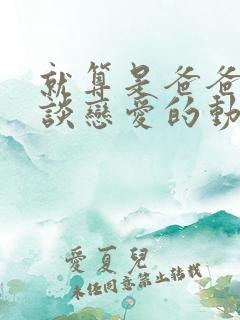 就算是爸爸
談戀愛的動
愛夏兒
未經同意禁止轉載